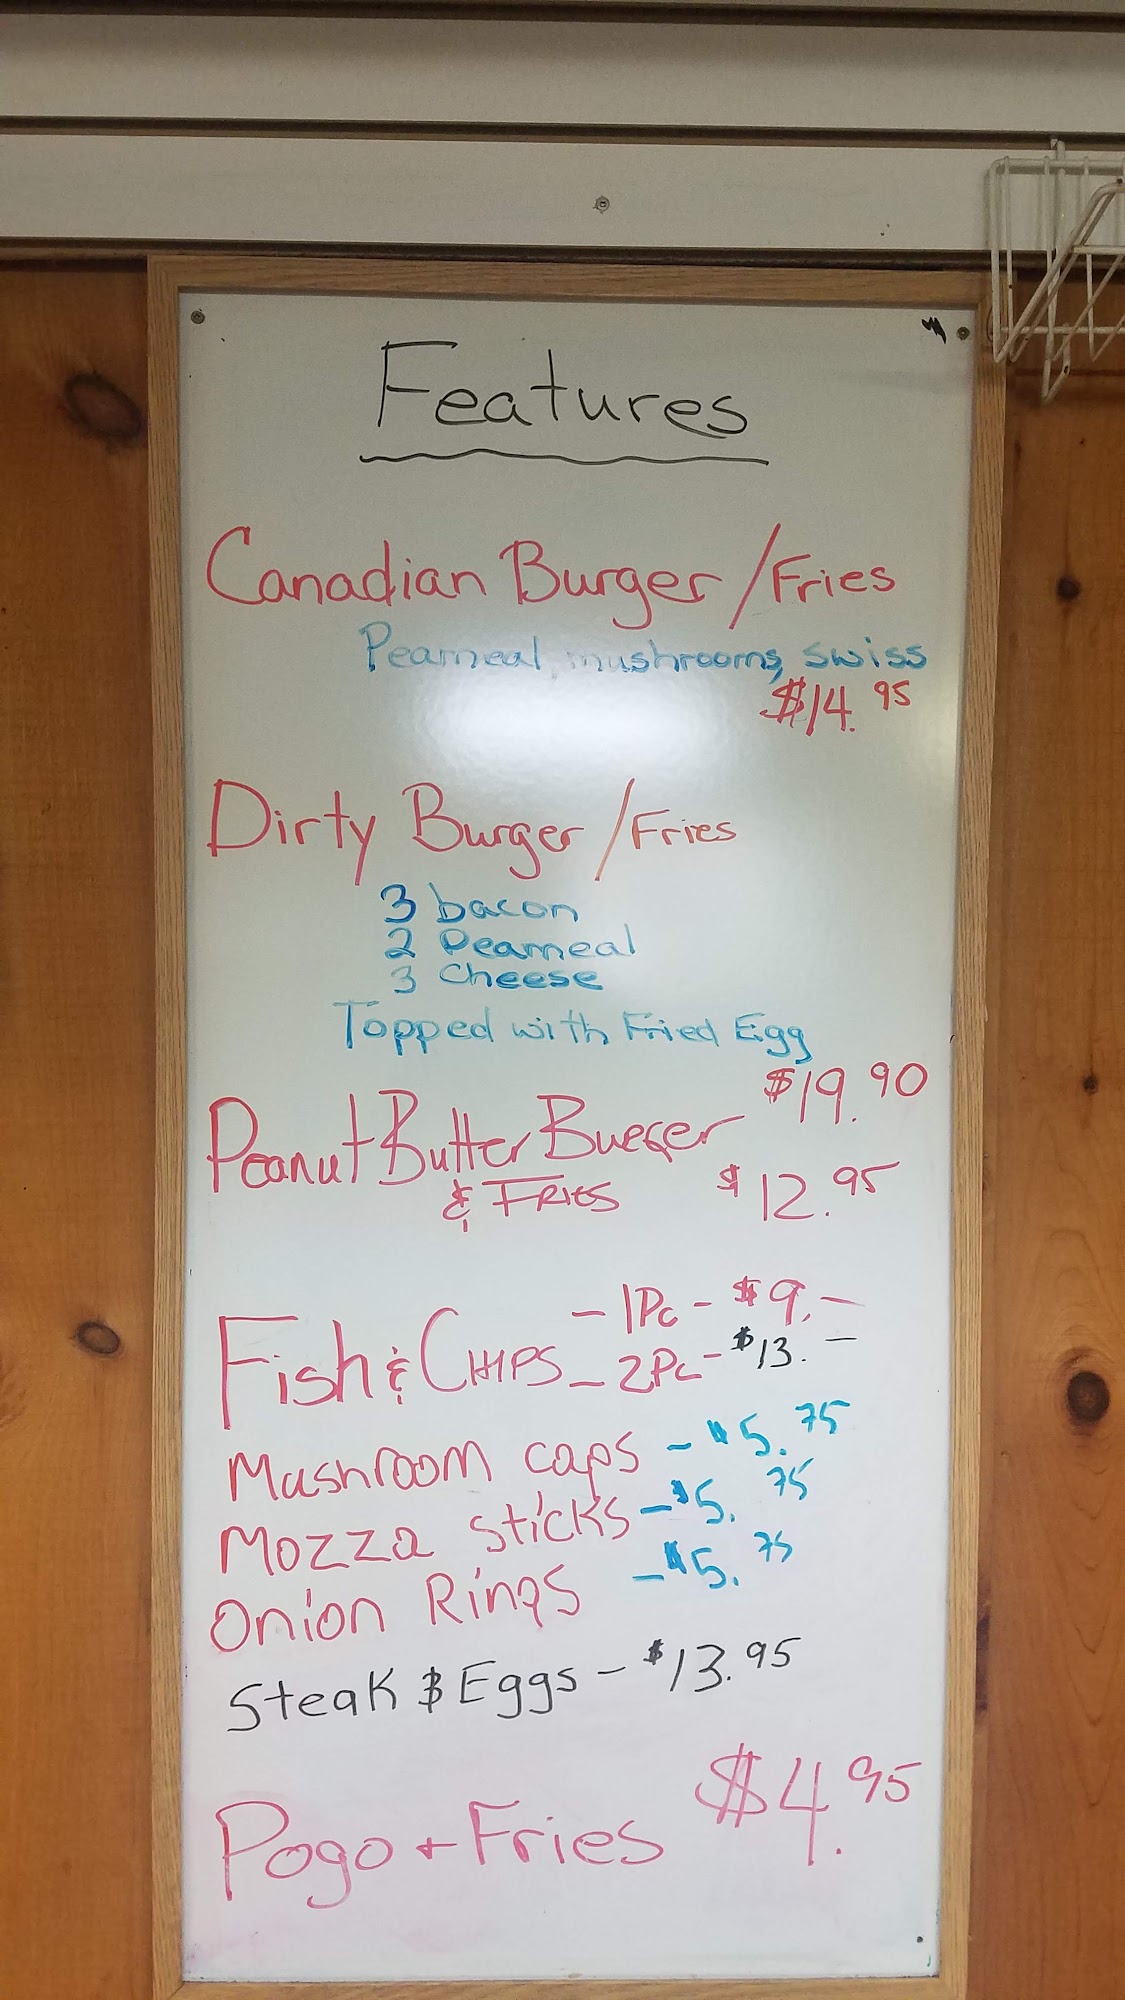 Features
Canadian Burger/Fries
Peameal, mushrooms, swiss
$14.95
Dirty Burger/Fries
3 bacon
2 Peameal
3 Cheese
Topped with Fried Egg
$19.90
Peanut Butter Burger
& Fries $12.95
Fish & Chips - 1Pc - $9.-
- 2Pc - $13.-
Mushroom caps - $5.75
Mozza sticks - $5.75
Onion Rings - $5.75
Steak & Eggs - $13.95
Pogo + Fries $4.95